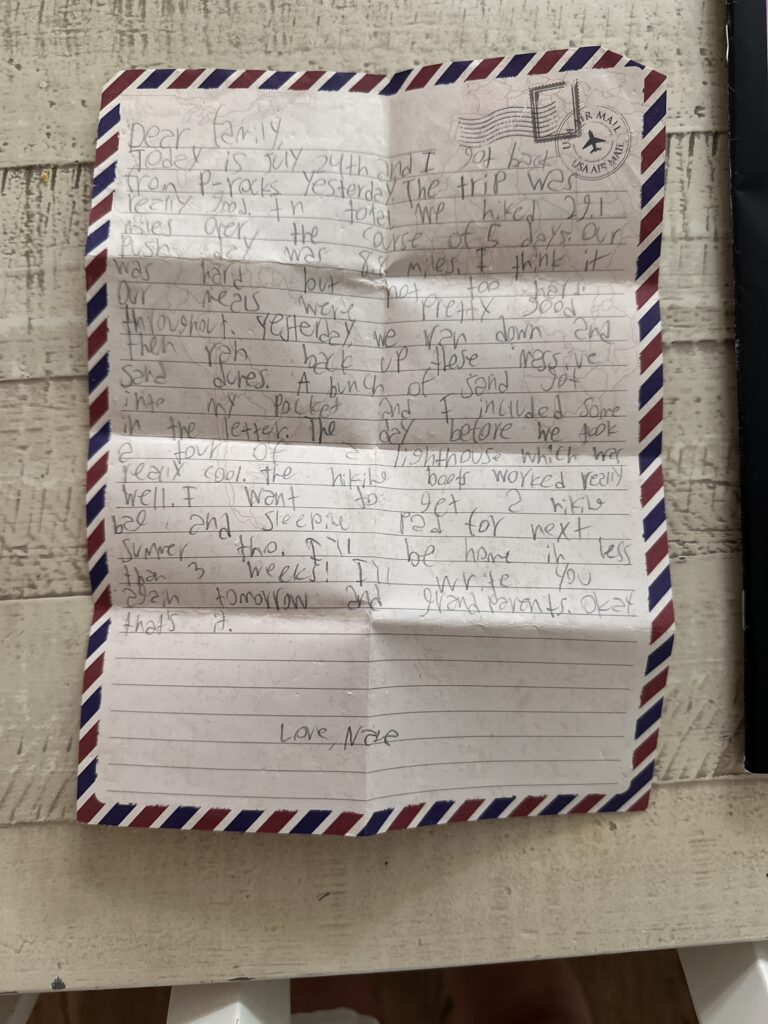 USA AIR MAIL
USA AIR MAIL
Dear family,
Today is July 24th and I got back
from P-rocks yesterday. The trip was
really good. In total we hiked 29.1
miles over the course of 5 days. Our
Push day was 8.8 miles. I think it
was hard but not too hard.
Our meals were pretty good
throughout. Yesterday we ran down and
then ran back up these massive
sand dunes. A bunch of sand got
into my pocket and I included some
in the letter. The day before we took
a tour of a lighthouse which was
really cool. the hiking boots worked really
well. I want to get a hiking
bag and sleeping pad for next
summer tho. I'll be home in less
than 3 weeks! I'll write you
again tomorrow and grandparents. Okay
that's it.
Love, Nate